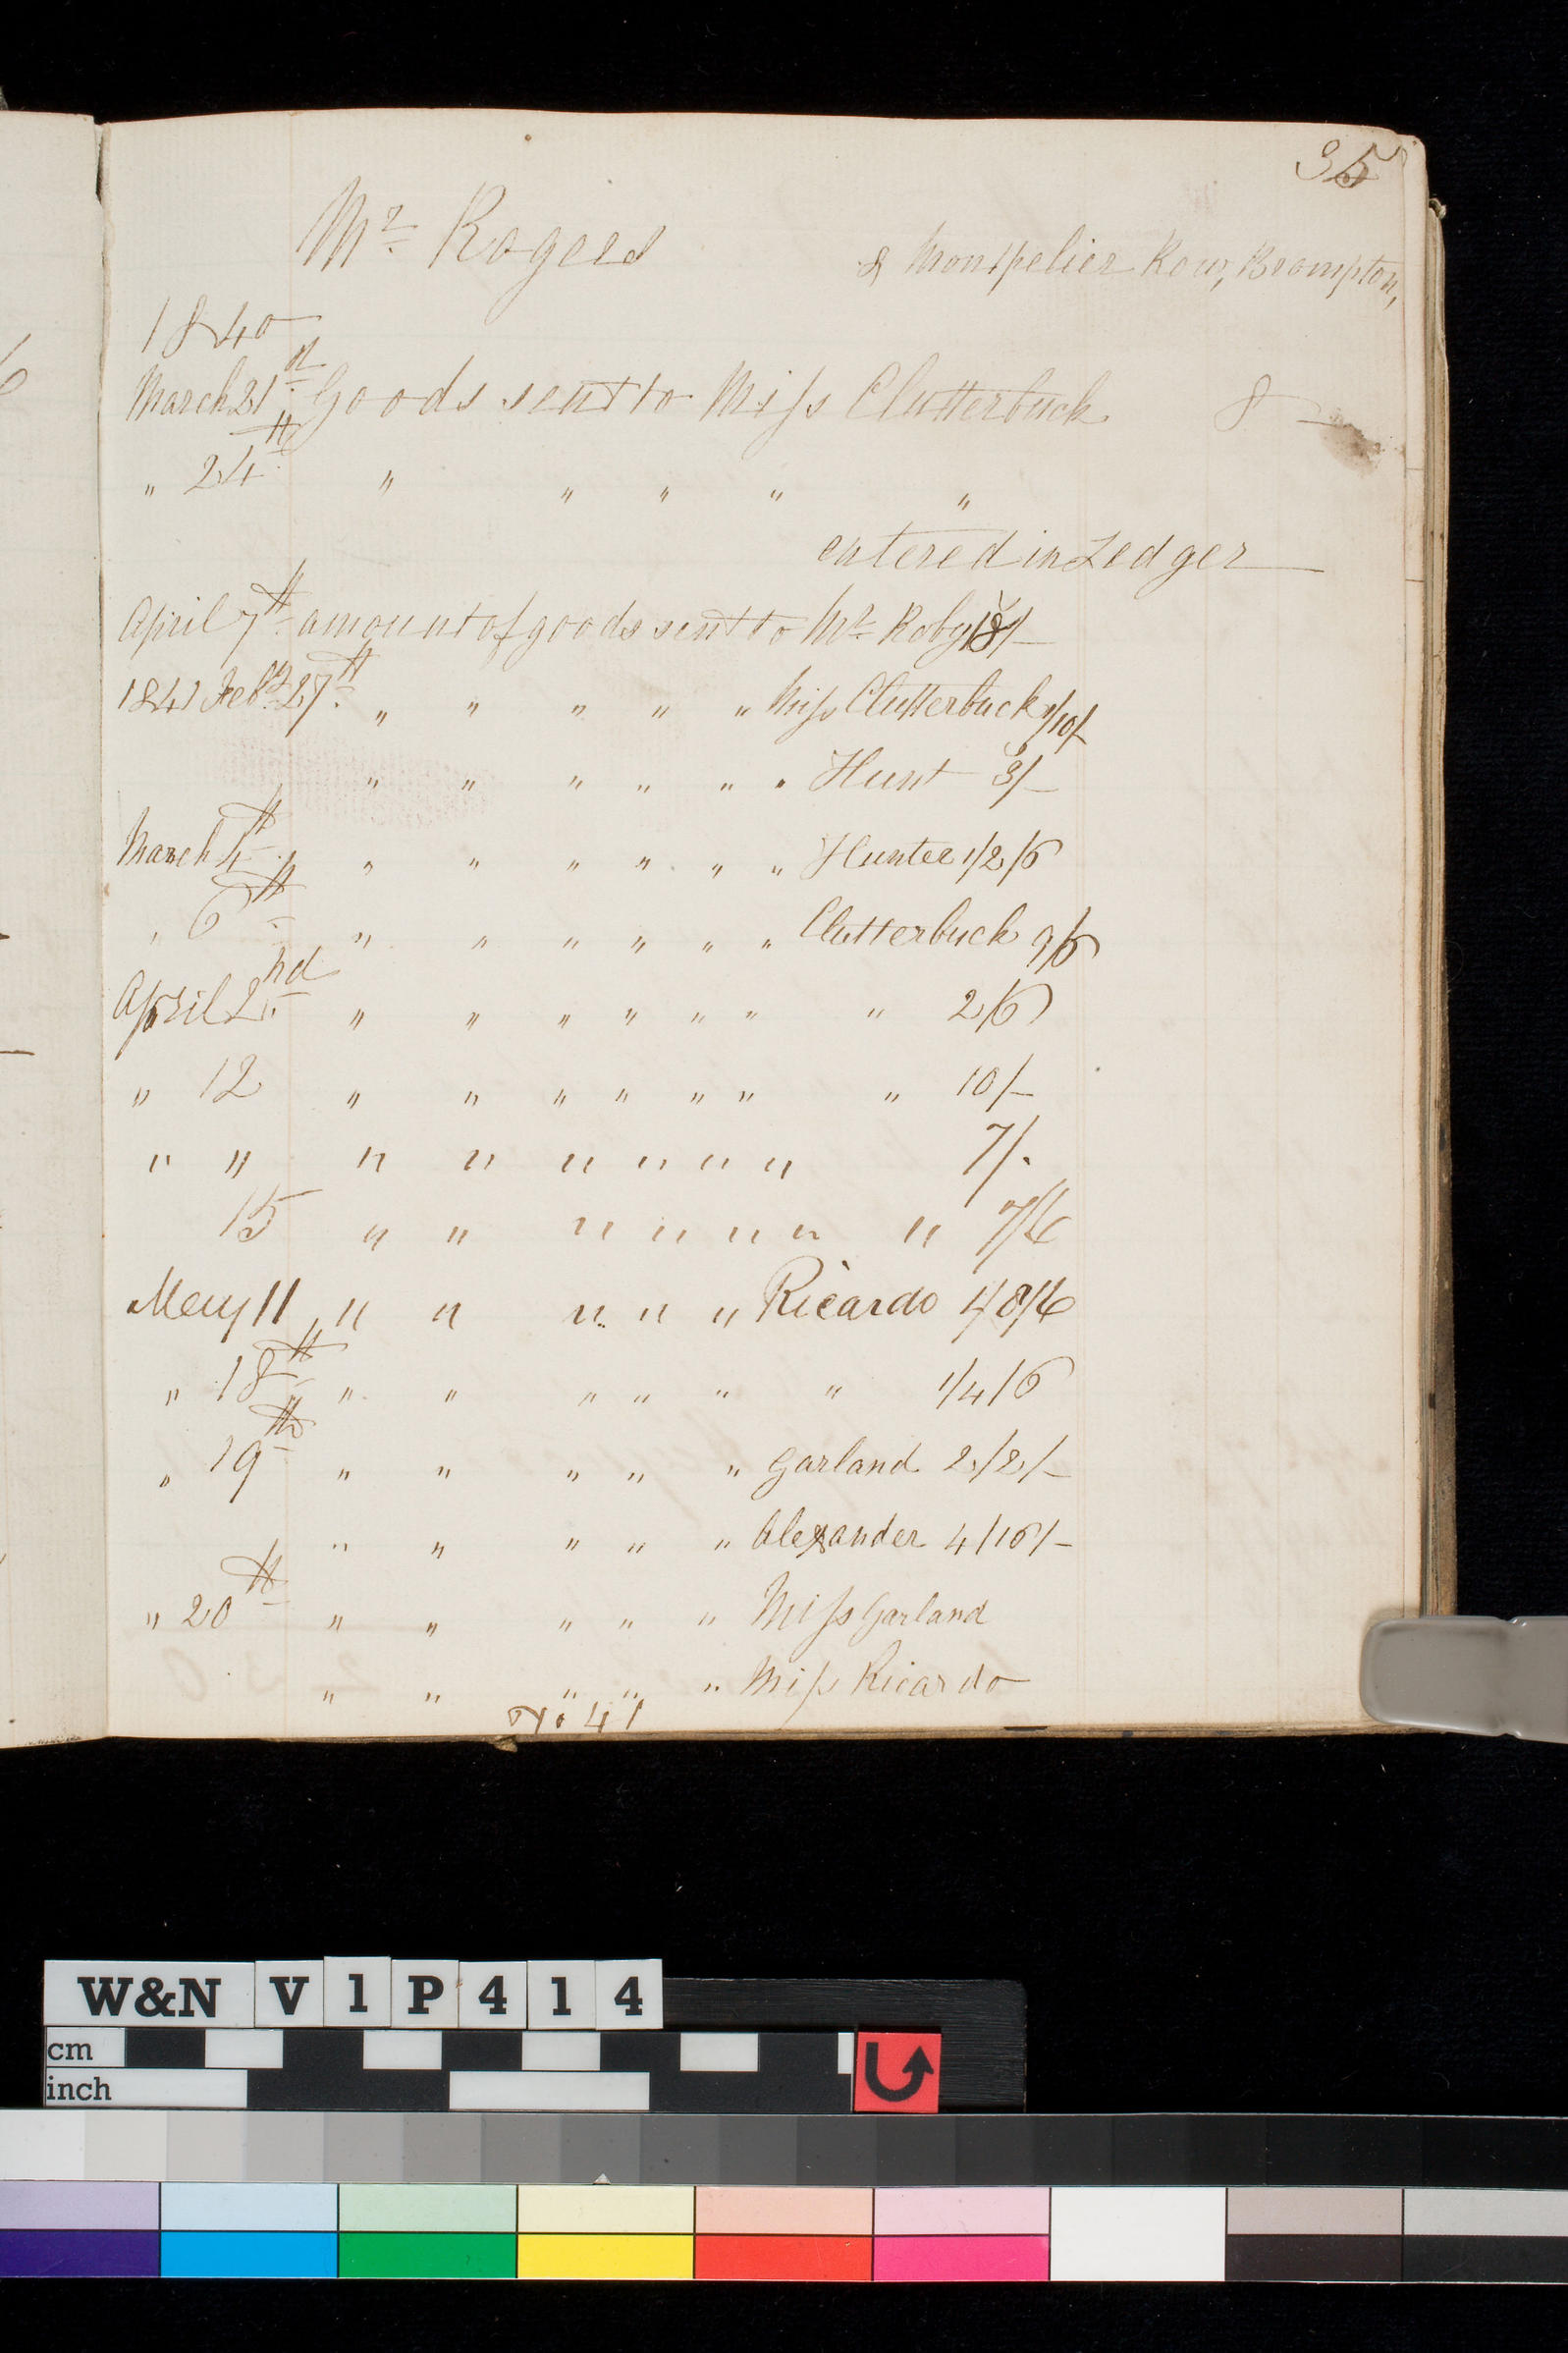 35
Mr. Rogers
8 Montpelier Row, Brompton,
1840
March 21st Goods sent to Miss Clutterbuck 8 —
" 24th " " " " "
entered in Ledger
April 7th amount of goods sent to Mr. Roby 18/-
1841 Feby. 27th " " " " " Miss Clutterbuck 1/10/-
" " " " " " Hunt 3/-
March 4th " " " " " " Hunter 1/2/6
" 6th " " " " " " Clutterbuck 9/6
April 2nd " " " " " " " 2/6
" 12 " " " " " " " 10/-
" " " " " " " " 7/.
15 " " " " " " " 7/6
May 11 " " " " " Ricardo 1/8/6
" 18th " " " " " " 1/4/6
" 19th " " " " " Garland 2/2/-
" " " " " Alexander 4/16/-
" 20th " " " " " Miss Garland
" " " " " Miss Ricardo
W&N V 1 P 4 1 4
cm
inch